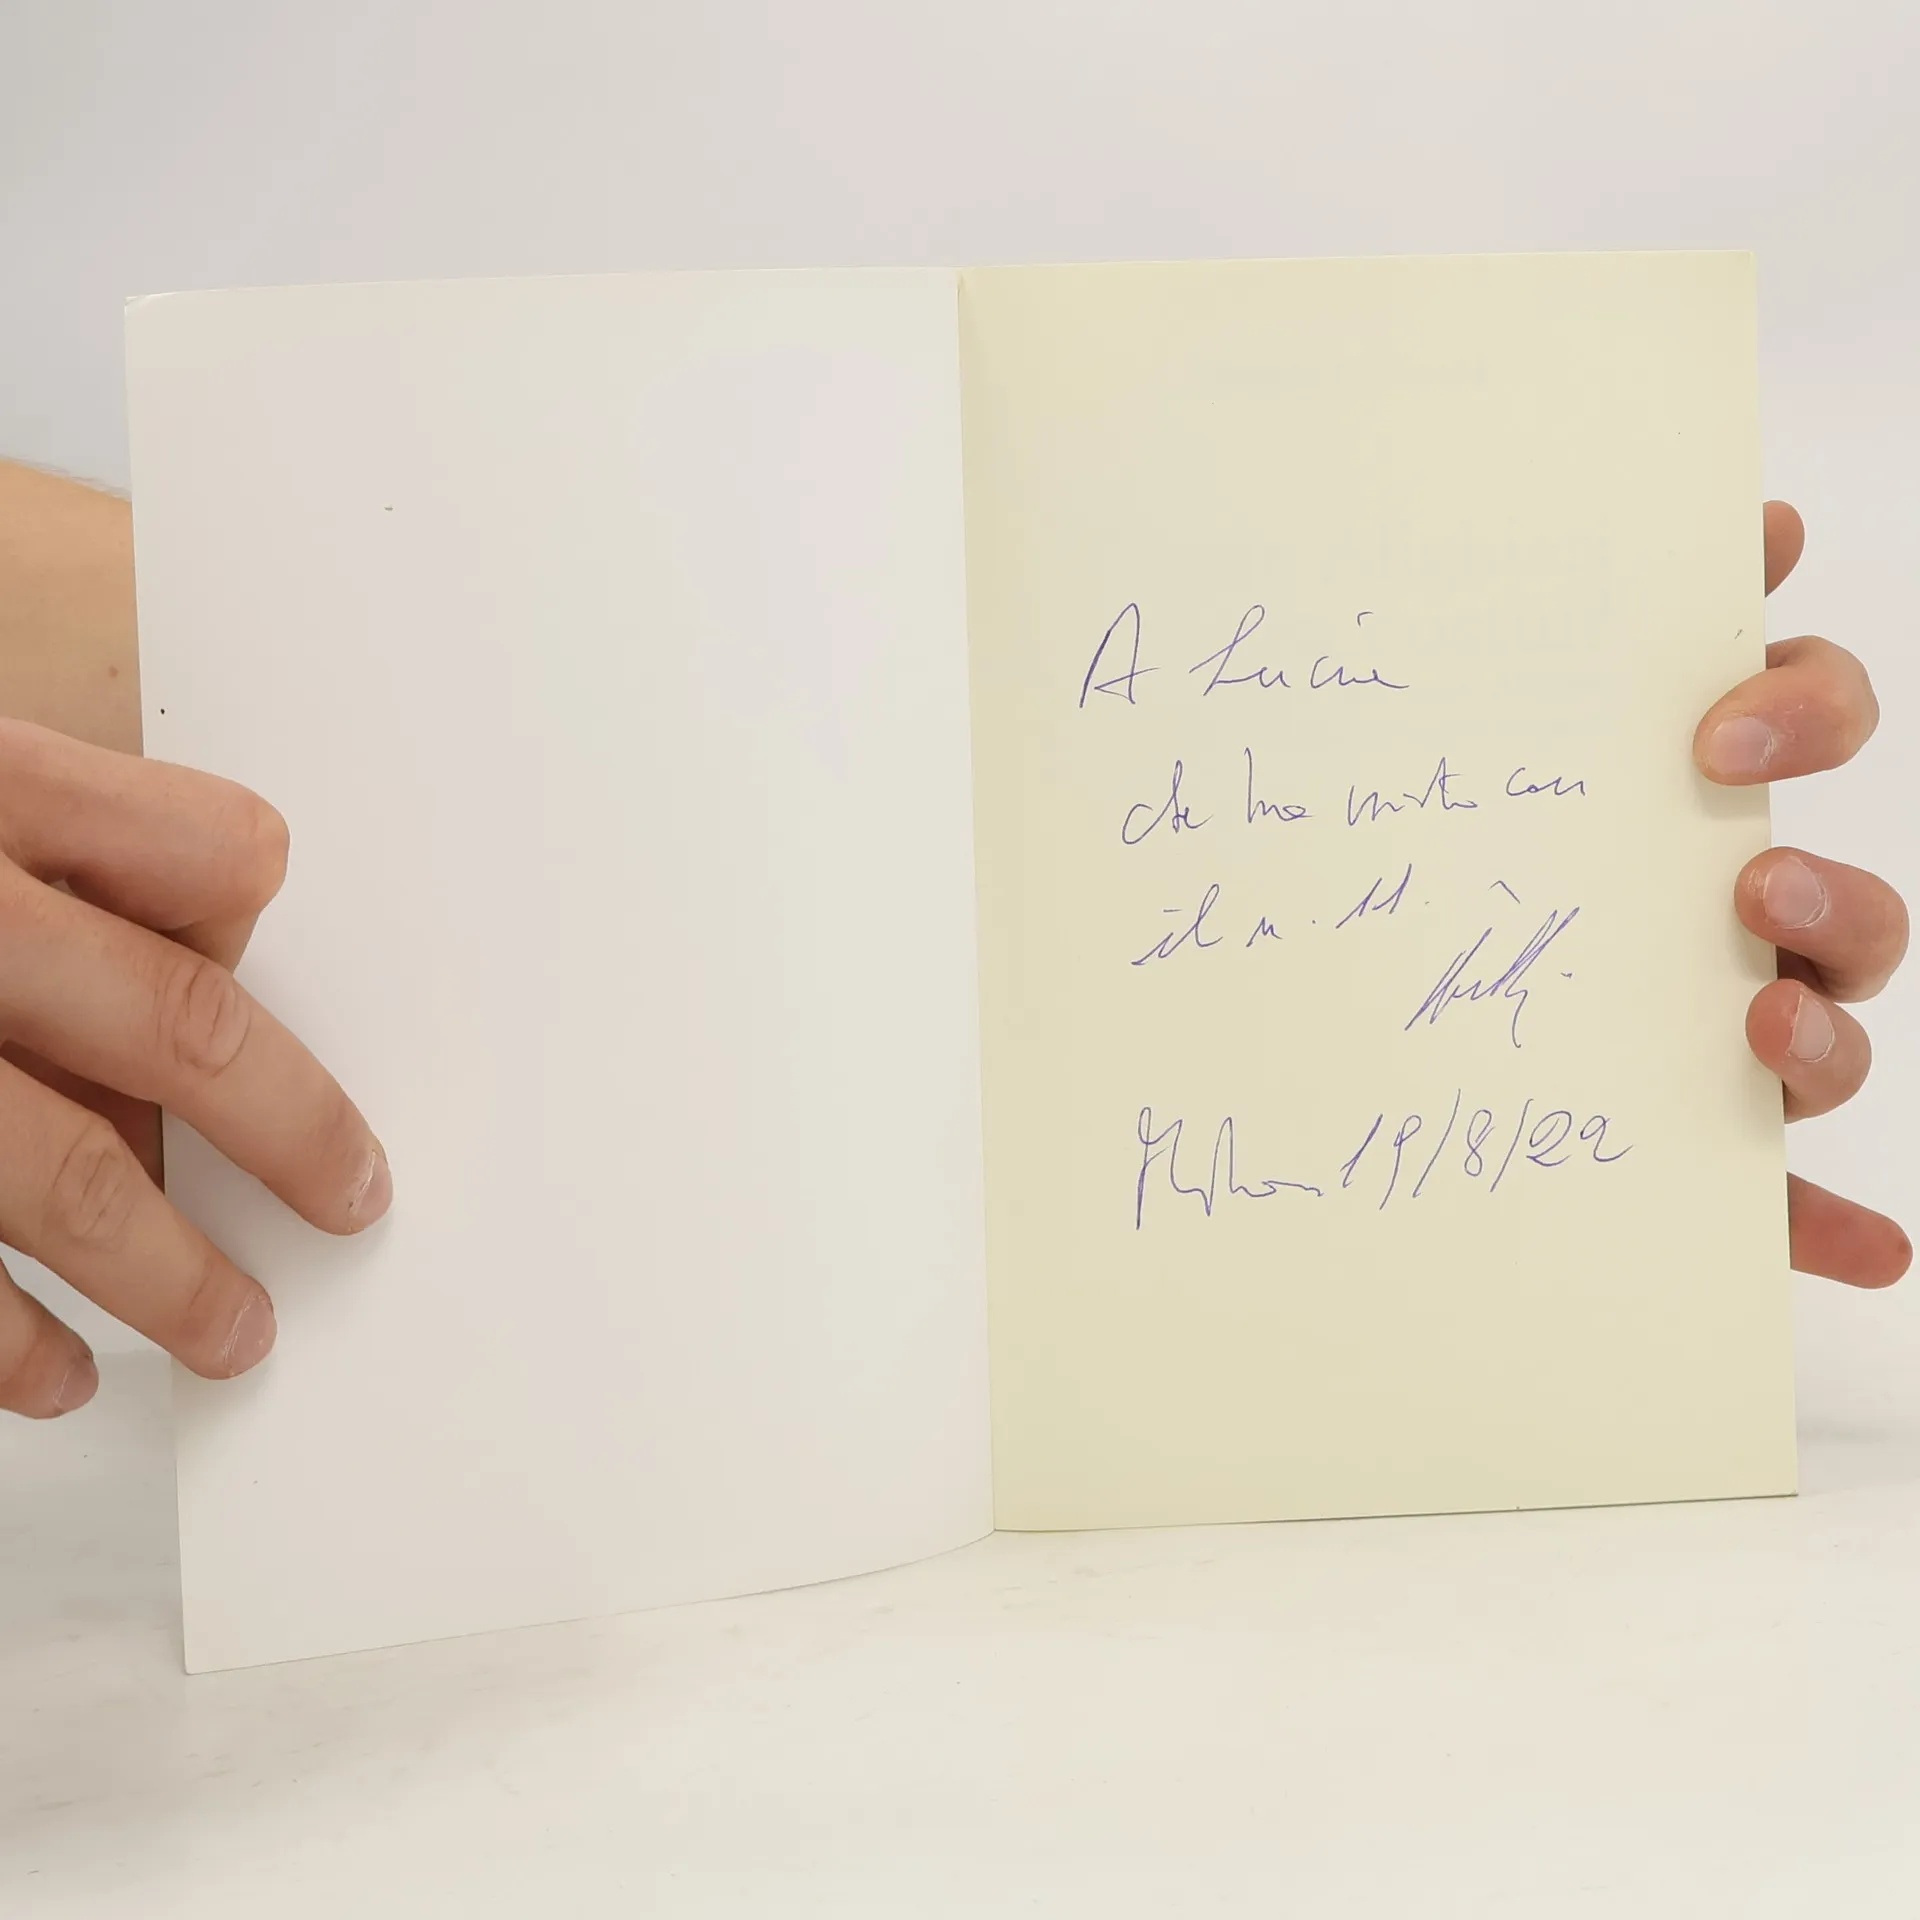 A Lucia
che ha vinto con
il n. 11.
19/8/22